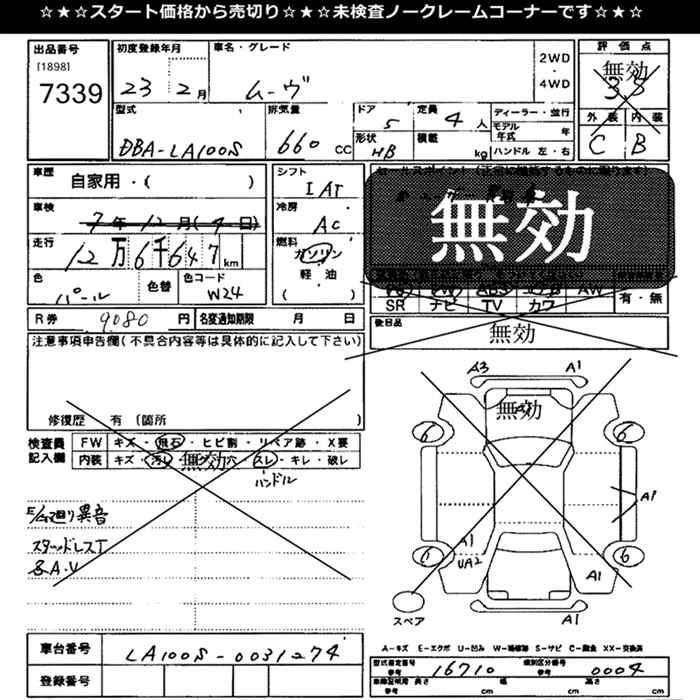 ☆★☆★スタート価格から売切り☆★☆★未検査ノークレームコーナーです☆★☆
出品番号 初度登録年月 車名・グレード 2WD・4WD 評価点
[1898] 7339 23 2月 ムーヴ 無効 3.5
型式 排気量 ドア 5 定員 4人 ディーラー・並行 外装 内装
DBA-LA100S 660 CC 形状 HB 積載 kg モデル年式 年 ハンドル 左・右 C B
車歴 自家用・( ) シフト IAT セールスポイント
車検 7年12月(4日) 冷房 AC
無効
走行 12万6千647km 燃料 ガソリン 軽油 ( )
色 パール 色替 色コード W24
SR ナビ TV カワ AW 有・無
R券 9080円 名変通知期限 月 日 後日品 無効
注意事項申告欄(不具合内容等は具体的に記入して下さい)
修復歴 有 (箇所
検査員記入欄 FW キズ・飛石・ヒビ割・リペア跡・X要
内装 キズ・汚れ 無効 穴 スレ・キレ・破レ
ハンドル
E/ム廻り異音
スタッドレスT
A3 A1
無効
6 6
A1
A1
UA2
6
A1
スペア A1
A-キズ E-エクボ U-凹み W-補修跡 S-サビ C-腐食 XX-交換済
車台番号 LA100S-0031274
型式指定番号 参考 16710 類別区分番号 参考 0004
登録番号
車検証明用 参考 長さ cm 幅 cm 高さ cm